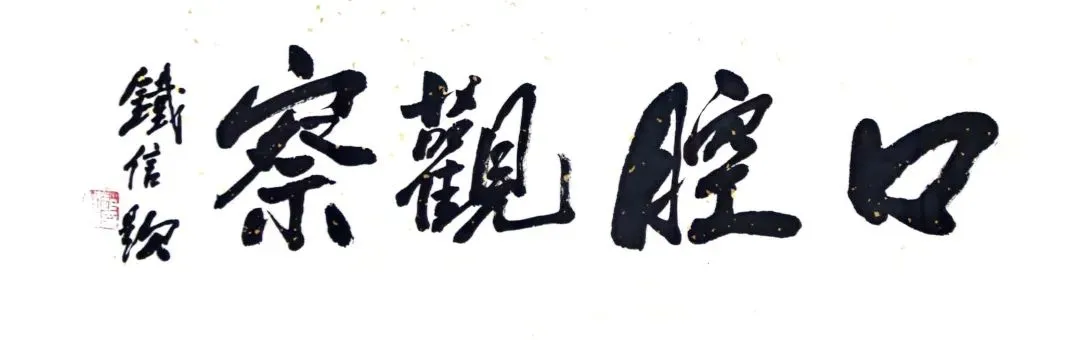 口腔觀察
鐵信題